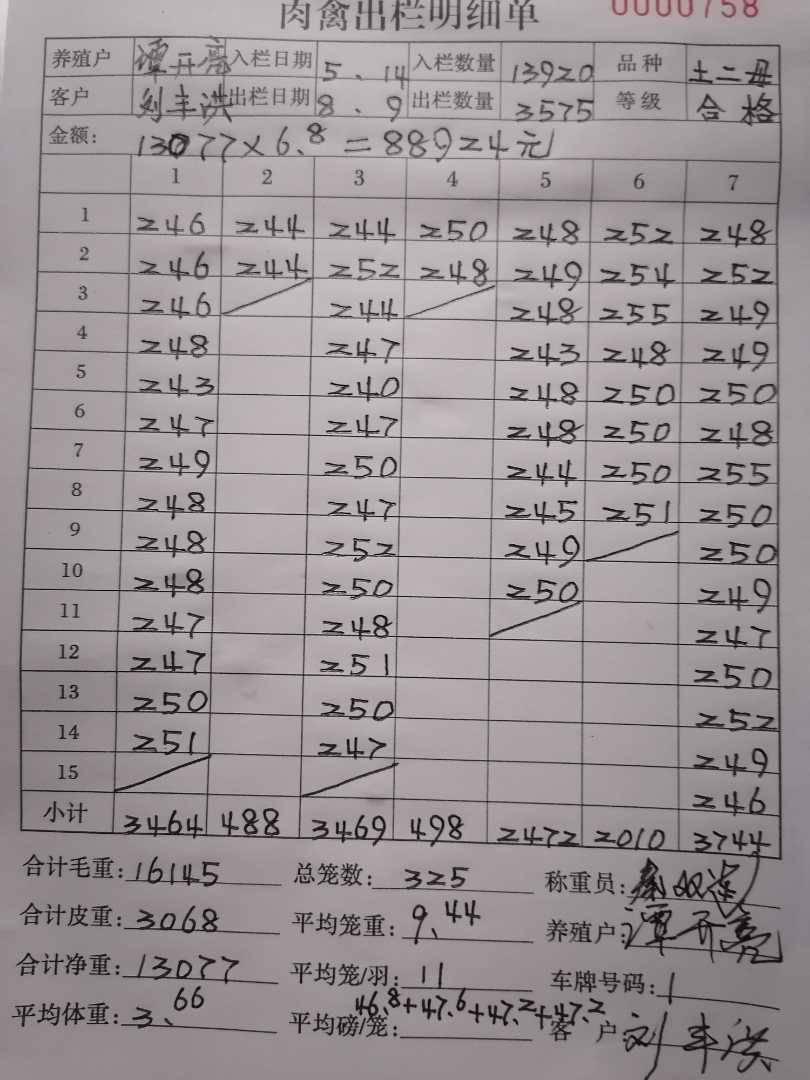 肉禽出栏明细单 0000758
养殖户 谭开亮 入栏日期 5.14 入栏数量 13920 品种 土二母
客户 刘丰洪 出栏日期 8.9 出栏数量 3575 等级 合格
金额: 13077×6.8=88924元
1 2 3 4 5 6 7
1 246 244 244 250 248 252 248
2 246 244 252 248 249 254 252
3 246 244 248 255 249
4 248 247 243 248 249
5 243 240 248 250 250
6 247 247 248 250 248
7 249 250 244 250 255
8 248 247 245 251 250
9 248 252 249 250
10 248 250 250 249
11 247 248 247
12 247 251 250
13 250 250 252
14 251 247 249
15 246
小计 3464 488 3469 498 2472 2010 3744
合计毛重: 16145 总笼数: 325 称重员:
合计皮重: 3068 平均笼重: 9.44 养殖户: 谭开亮
合计净重: 13077 平均笼/羽: 11 车牌号码: 1
平均体重: 3.66 平均磅/笼: 46.8+47.6+47.2+47.2 客户: 刘丰洪